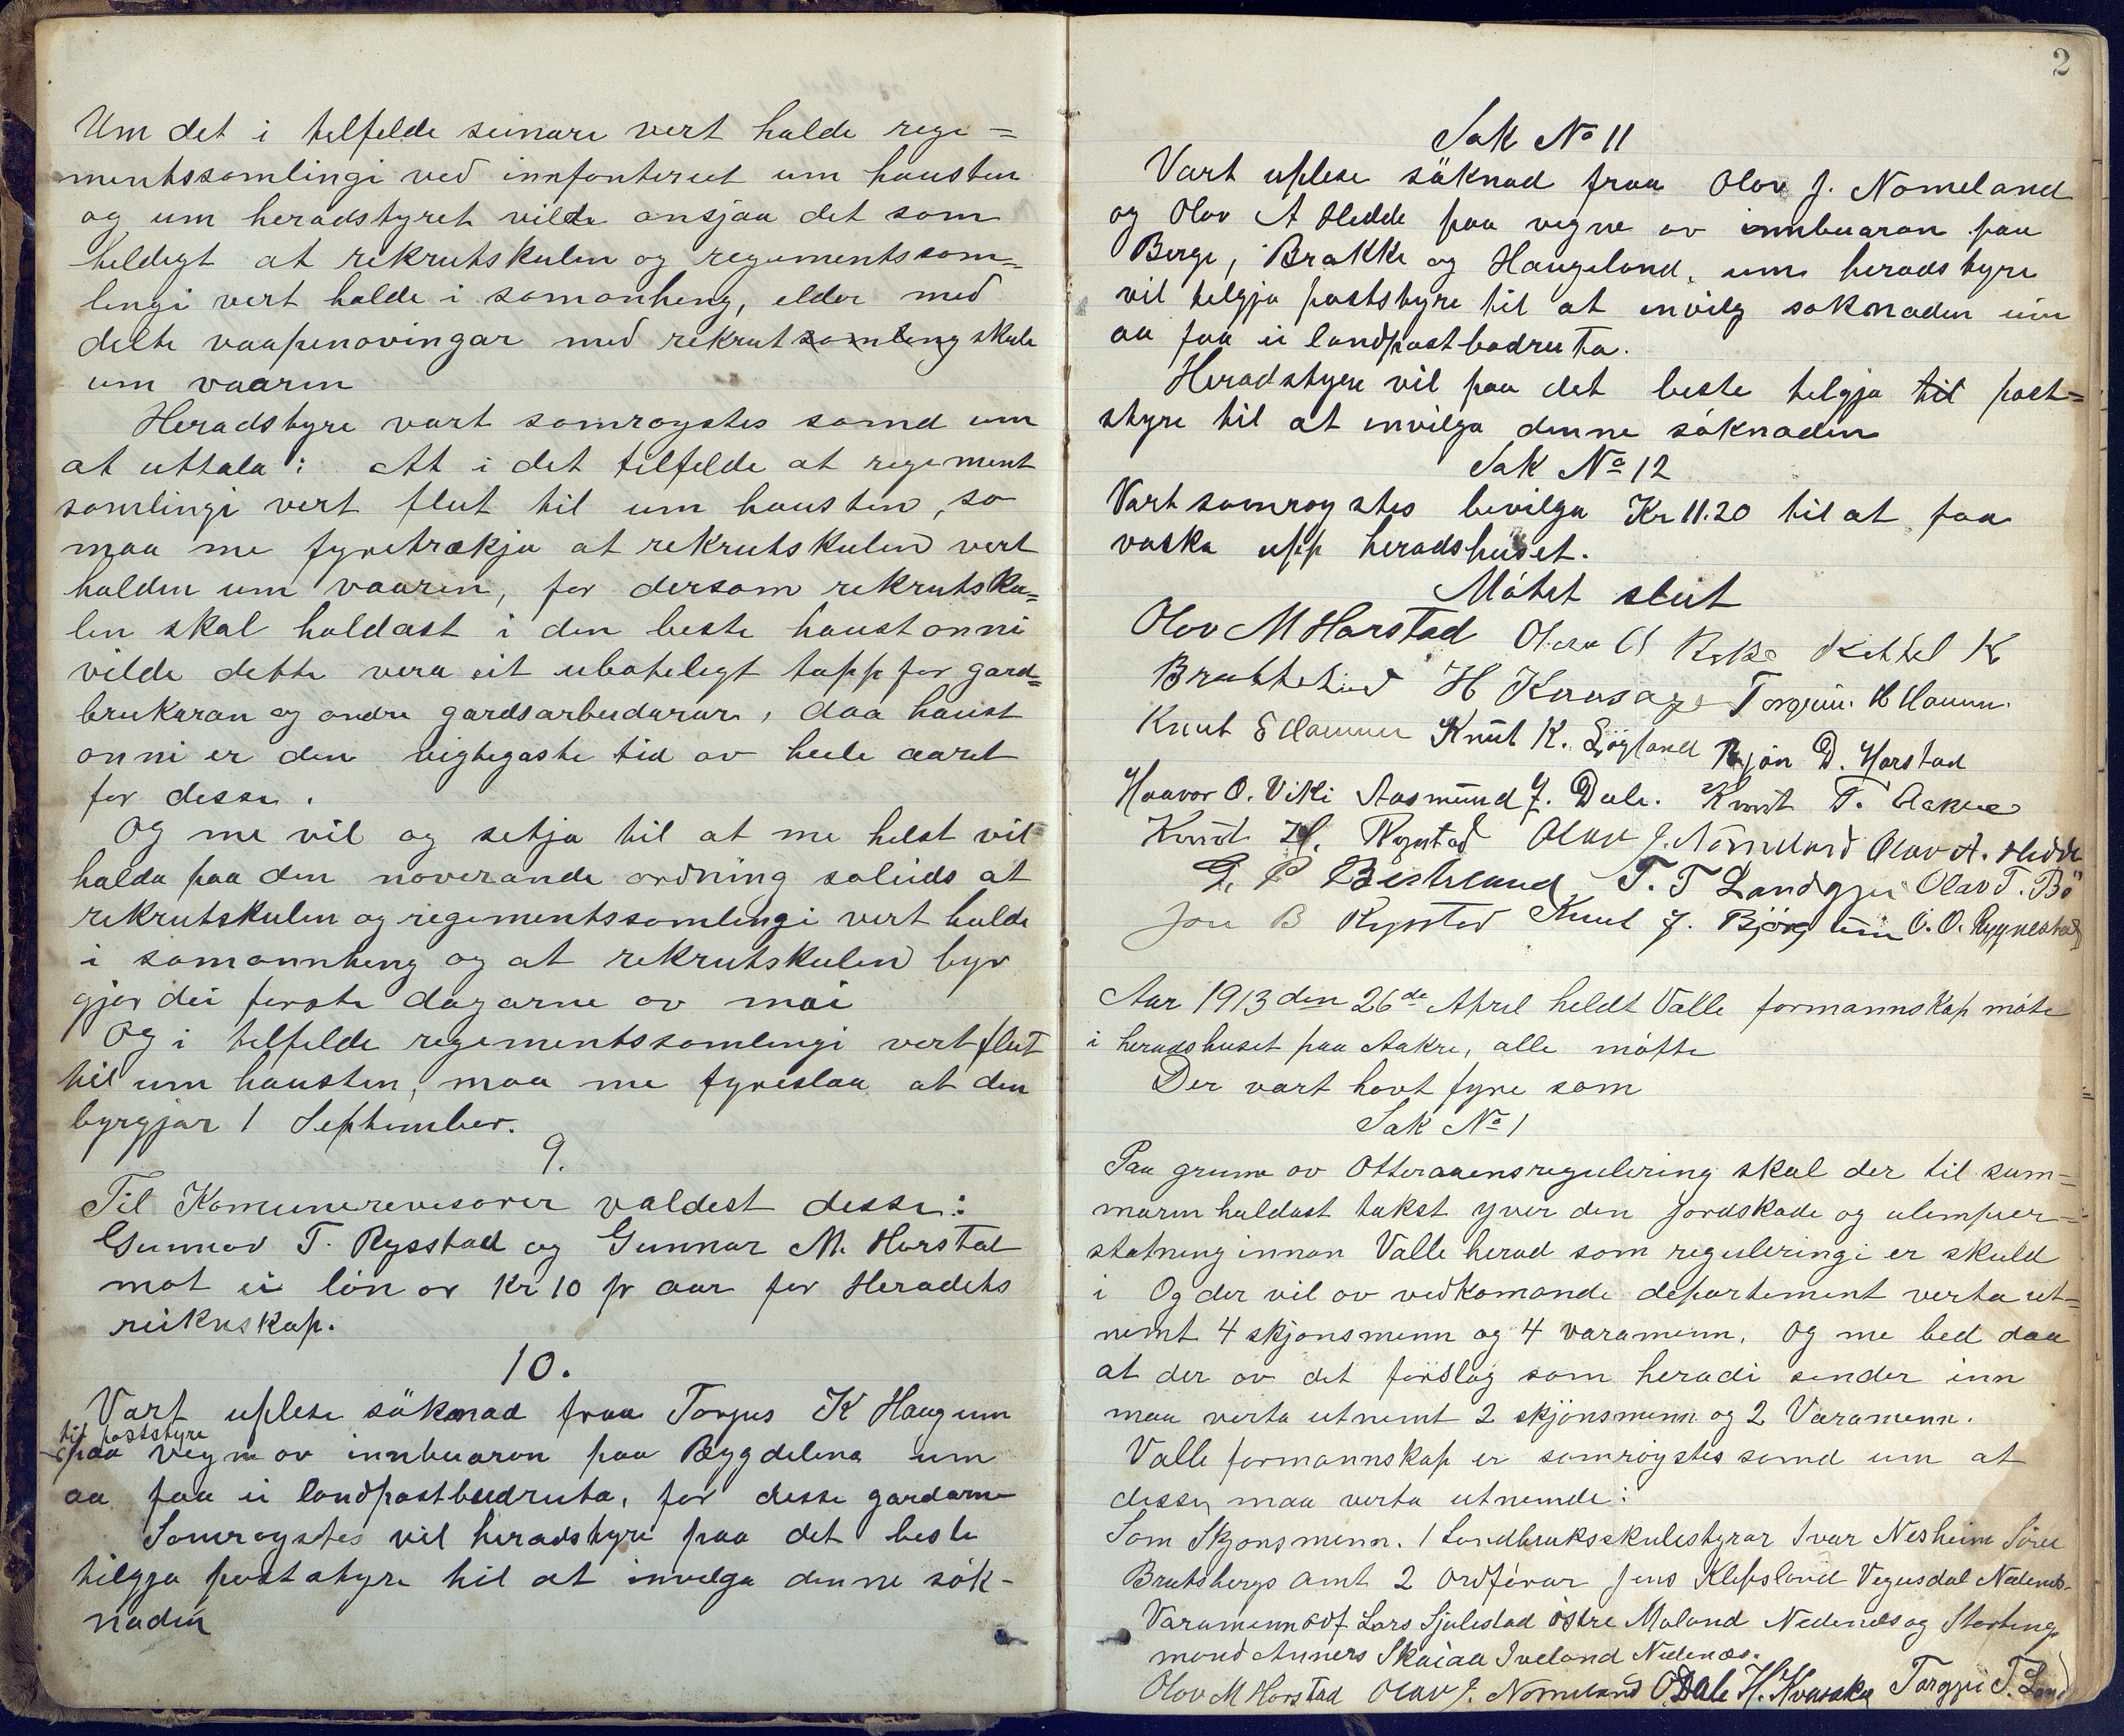 Um det i tilfelde seinare vert halde rege=
mentssamlingi ved innfanteriet um hausten
og um heradstyret vilde ansjaa det som
heldigt at rekrutskulen og regementssam=
lingi vert halde i samanheng, elder med
delte vaapenøvingar med rekrut samling skule
um vaaren
Heradstyre vart samrøystes samd um
at uttala: At i det tilfelde at regement
samlingi vert flut til um hausten, so
maa me fyretrækja at rekrutskulen vert
halden um vaaren, for dersom rekrutsku=
len skal haldast i den beste haustonni
vilde dette vera eit uboteligt tapp for gard=
brukaran og andre gardsarbeidarar, daa haust
onni er den vigtegaste tid av heile aaret
for desse.
Og me vil og setja til at me helst vil
halda paa den noverande ordning soleids at
rekrutskulen og regementssamlingi vert halde
i samannheng og at rekrutskulen byr
gjar dei fyrste dagarne av mai
Og i tilfelde regementssamlingi vert flut
til um hausten, maa me fyreslaa at den
byrgjar 1 September.
9.
Til Komunerevisorer valdest desse:
Gunnar T. Rysstad og Gunnar M. Harstad
mot ei løn av Kr 10 pr aar for Heradets
reiknskap.
10.
Vart uplese søknad fraa Torjus K Haugum
til poststyre
paa vegne av innbuaran paa Bygdelina um
aa faa ei landpostbudruta, for desse gardarne
Samrøystes vil heradstyre paa det beste
tilgja poststyre til at invilga denne søk-
naden
2
Sak No 11
Vart uplese søknad fraa Olav J. Nomeland
og Olav A Hedde paa vegne av innbuaran paa
Berge, Brokke og Haugeland, um heradstyre
vil tilgja poststyre til at invilg søknaden um
aa faa ei landpostbodruta.
Heradstyre vil paa det beste tilgja til post=
styre til at invilga denne søknaden
Sak No 12
Vart samrøystes bevilga Kr 11.20 til at faa
vaska upp heradshuset.
Møtet slut
Olov M Harstad Olav Kittel K
H Torgeir H
Knut Knut K. Løyland D. Harstad
Haavor O. Viki Aasmund J. Dale. Knut T. Aakre
Knut H. Rysstad Olav J. Nomeland Olav A. Hedde
G. P T. T Landgjei Olav T. Bø
Jon B Rysstad Knut J. Bjørgum O. O. Rygnestad
Aar 1913 den 26de April heldt Valle formannskap møte
i heradshuset paa Aakre, alle møtte
Der vart havt fyre som
Sak No 1
Paa grunn av Otteraaensregulering skal der til sum=
maren haldast takst yver den jordskade og ulemper=
statning innan Valle herad som reguleringi er skuld
i Og der vil av vedkomande departement verta ut=
nemt 4 skjønsmenn og 4 varamenn. Og me bed daa
at der av det førslag som heradi sender inn
maa verta utnemt 2 skjønsmenn og 2 Varamenn.
Valle formannskap er samrøystes samd um at
desse maa verta utnemde:
Som Skjønsmenn. 1 Landbruksskulestyrar Ivar Nesheim Søve
Bratsbergs amt 2 Ordførar Jens Klepsland Vegusdal Nedenes-
Varamenn Lars Sjulestad østre Moland Nedenes og Stortings
mand Anners Skaiaa Iveland Nedenæs.
Olov M Harstad Olav J. Nomeland O Dale H. Kvasaker Torgjei T. Land